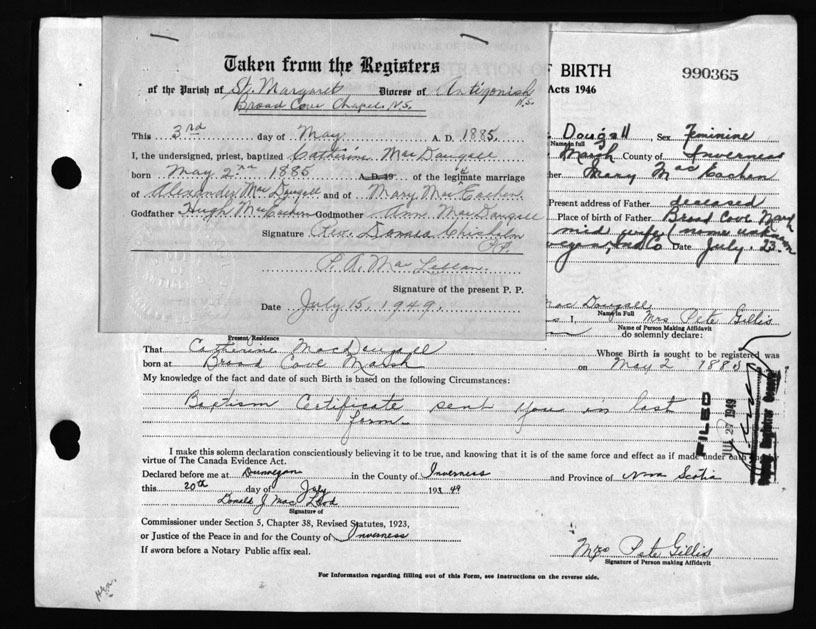 Taken from the Registers
of the Parish of St. Margaret Diocese of Antigonish N.S.
Broad Cove Chapel N.S.
This 3rd day of May A. D. 1885.
I, the undersigned, priest, baptized Catherine MacDougall
born May 2nd 1885 A.D. 19 of the legitimate marriage
of Alexander MacDougall and of Mary MacEachen
Godfather Hugh MacEachen Godmother Ann MacDougall
Signature Rev. Donald Chisholm
P.P.
MacLellan.
Signature of the present P. P.
Date July 15, 1949.
BIRTH 990365
Acts 1946
Dougall, Sex Feminine
Name in full
Marsh County of Inverness
Mary MacEachen
Present address of Father deceased
Place of birth of Father Broad Cove Marsh
mid wife (name unknown
Date July. 23.
MacDougall
Name in Full
I, Mrs Pete Gillis
Name of Person Making Affidavit
do solemnly declare:
Present Residence
That Catherine MacDougall Whose Birth is sought to be registered was
born at Broad Cove Marsh on May 2 1885
My knowledge of the fact and date of such Birth is based on the following Circumstances:
Baptism Certificate sent you in last
form.
I make this solemn declaration conscientiously believing it to be true, and knowing that it is of the same force and effect as if made under oath and
virtue of The Canada Evidence Act.
Declared before me at Dunvegan in the County of Inverness and Province of Nova Scotia
this 20th day of July 193 49
Donald J MacLeod
Signature of
Commissioner under Section 5, Chapter 38, Revised Statutes, 1923,
or Justice of the Peace in and for the County of Inverness
If sworn before a Notary Public affix seal.
Mrs Pete Gillis
Signature of Person making Affidavit
For Information regarding filling out of this Form, see Instructions on the reverse side.
FILED
1949